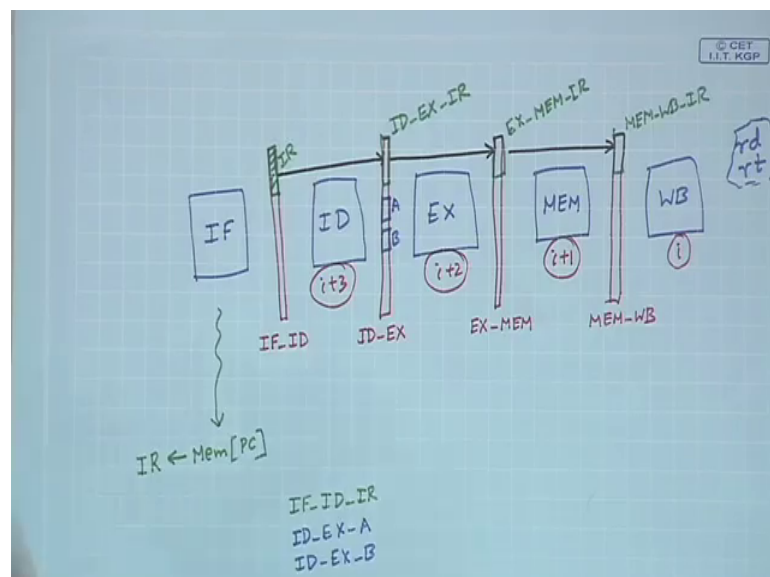 © CET
I.I.T. KGP
ID_EX_IR
EX_MEM_IR
MEM_WB_IR
IR
rd
rt
IF
ID
A
B
EX
MEM
WB
i+3
i+2
i+1
i
IF_ID
ID_EX
EX_MEM
MEM_WB
IR ← Mem[PC]
IF_ID_IR
ID_EX_A
ID_EX_B